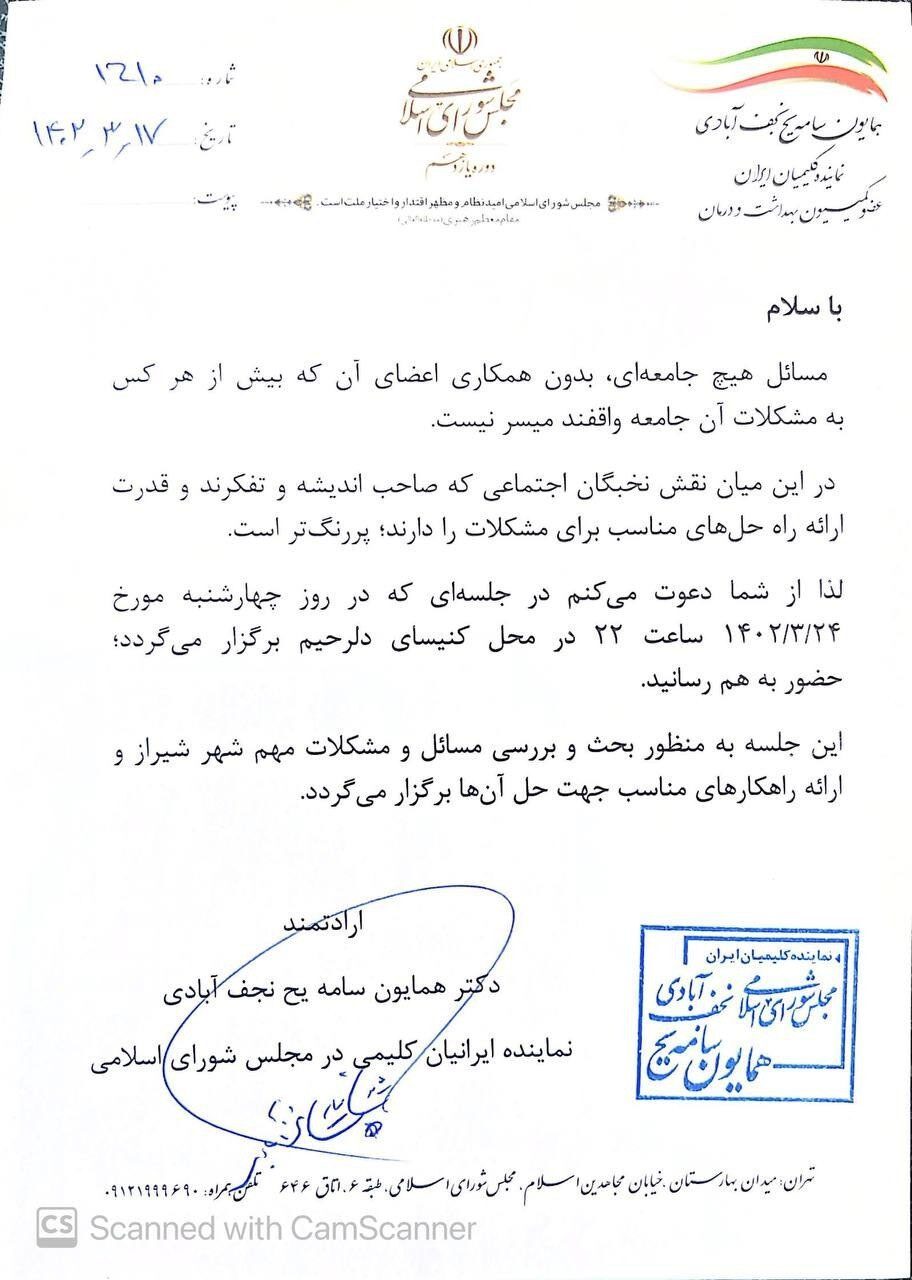 جمهوری اسلامی ایران
مجلس شورای اسلامی
دوره یازدهم
مجلس شورای اسلامی امید نظام و مظهر اقتدار و اختیار ملت است.
مقام معظم رهبری (مدظله‌العالی)
همایون سامه یح نجف آبادی
نماینده کلیمیان ایران
عضو کمیسیون بهداشت و درمان
شماره:
تاریخ: ۱۴۰۲٫۳٫۱۷
پیوست:
با سلام
مسائل هیچ جامعه‌ای، بدون همکاری اعضای آن که بیش از هر کس
به مشکلات آن جامعه واقفند میسر نیست.
در این میان نقش نخبگان اجتماعی که صاحب اندیشه و تفکرند و قدرت
ارائه راه حل‌های مناسب برای مشکلات را دارند؛ پررنگ‌تر است.
لذا از شما دعوت می‌کنم در جلسه‌ای که در روز چهارشنبه مورخ
۱۴۰۲/۳/۲۴ ساعت ۲۲ در محل کنیسای دلرحیم برگزار می‌گردد؛
حضور به هم رسانید.
این جلسه به منظور بحث و بررسی مسائل و مشکلات مهم شهر شیراز و
ارائه راهکارهای مناسب جهت حل آن‌ها برگزار می‌گردد.
ارادتمند
دکتر همایون سامه یح نجف آبادی
نماینده ایرانیان کلیمی در مجلس شورای اسلامی
نماینده کلیمیان ایران
مجلس شورای اسلامی
نجف آبادی
همایون سامه یح
تهران: میدان بهارستان، خیابان مجاهدین اسلام، مجلس شورای اسلامی، طبقه ۶، اتاق ۶۴۶ تلفن همراه: ۰۹۱۲۱۹۹۹۶۹۰
CS Scanned with CamScanner